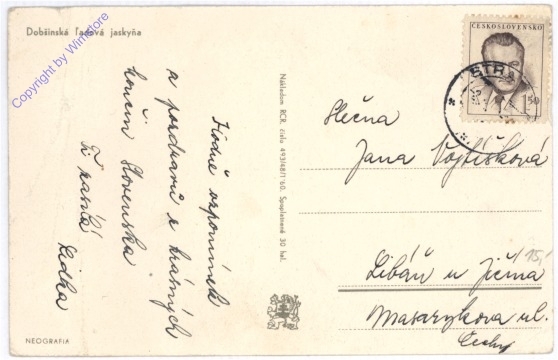 Dobšinská ľadová jaskyňa
Copyright by Winstore
Hodně vzpomínek
a pozdravů z krásných
končin Slovenska
Ti zasílá Lidka
Nákladom RCR, číslo 493/48/1'60. Spoplatnené 30 hal.
NEOGRAFIA
ČESKOSLOVENSKO
1'50
STR
Slečna
Jana Vojtíšková
15,-
Libáň u Jičína
Masarykova ul.
Čechy